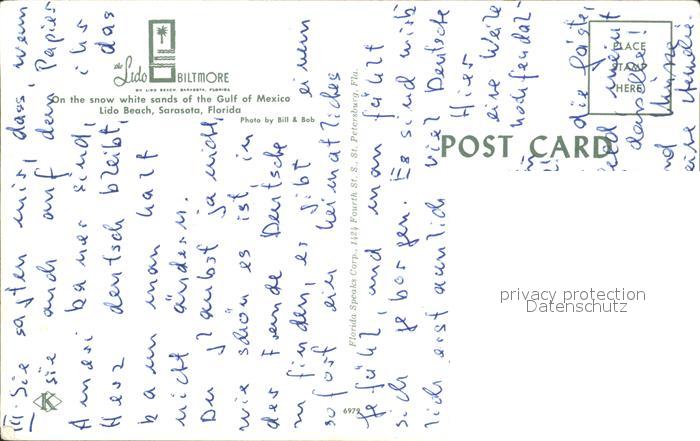 the Lido BILTMORE
ON LIDO BEACH, SARASOTA, FLORIDA
On the snow white sands of the Gulf of Mexico
Lido Beach, Sarasota, Florida
Photo by Bill & Bob
POST CARD
PLACE
STAMP
HERE
Florida Speaks Corp., 1424 Fourth St. S., St. Petersburg, Fla.
6979
K
privacy protection
Datenschutz
III. Sie sagten mir, dass, wenn
sie auch auf dem Papier
Amerikaner sind, ihr
Herz deutsch bleibt, das
kann man halt
nicht ändern.
Du glaubst ja nicht,
wie schön es ist, in
der Fremde Deutsche
zu finden, es gibt einem
sofort ein heimatliches
Gefühl, und man fühlt
sich geborgen. Es sind
lich erst viel Deutsche
Hier
eine Weile
die